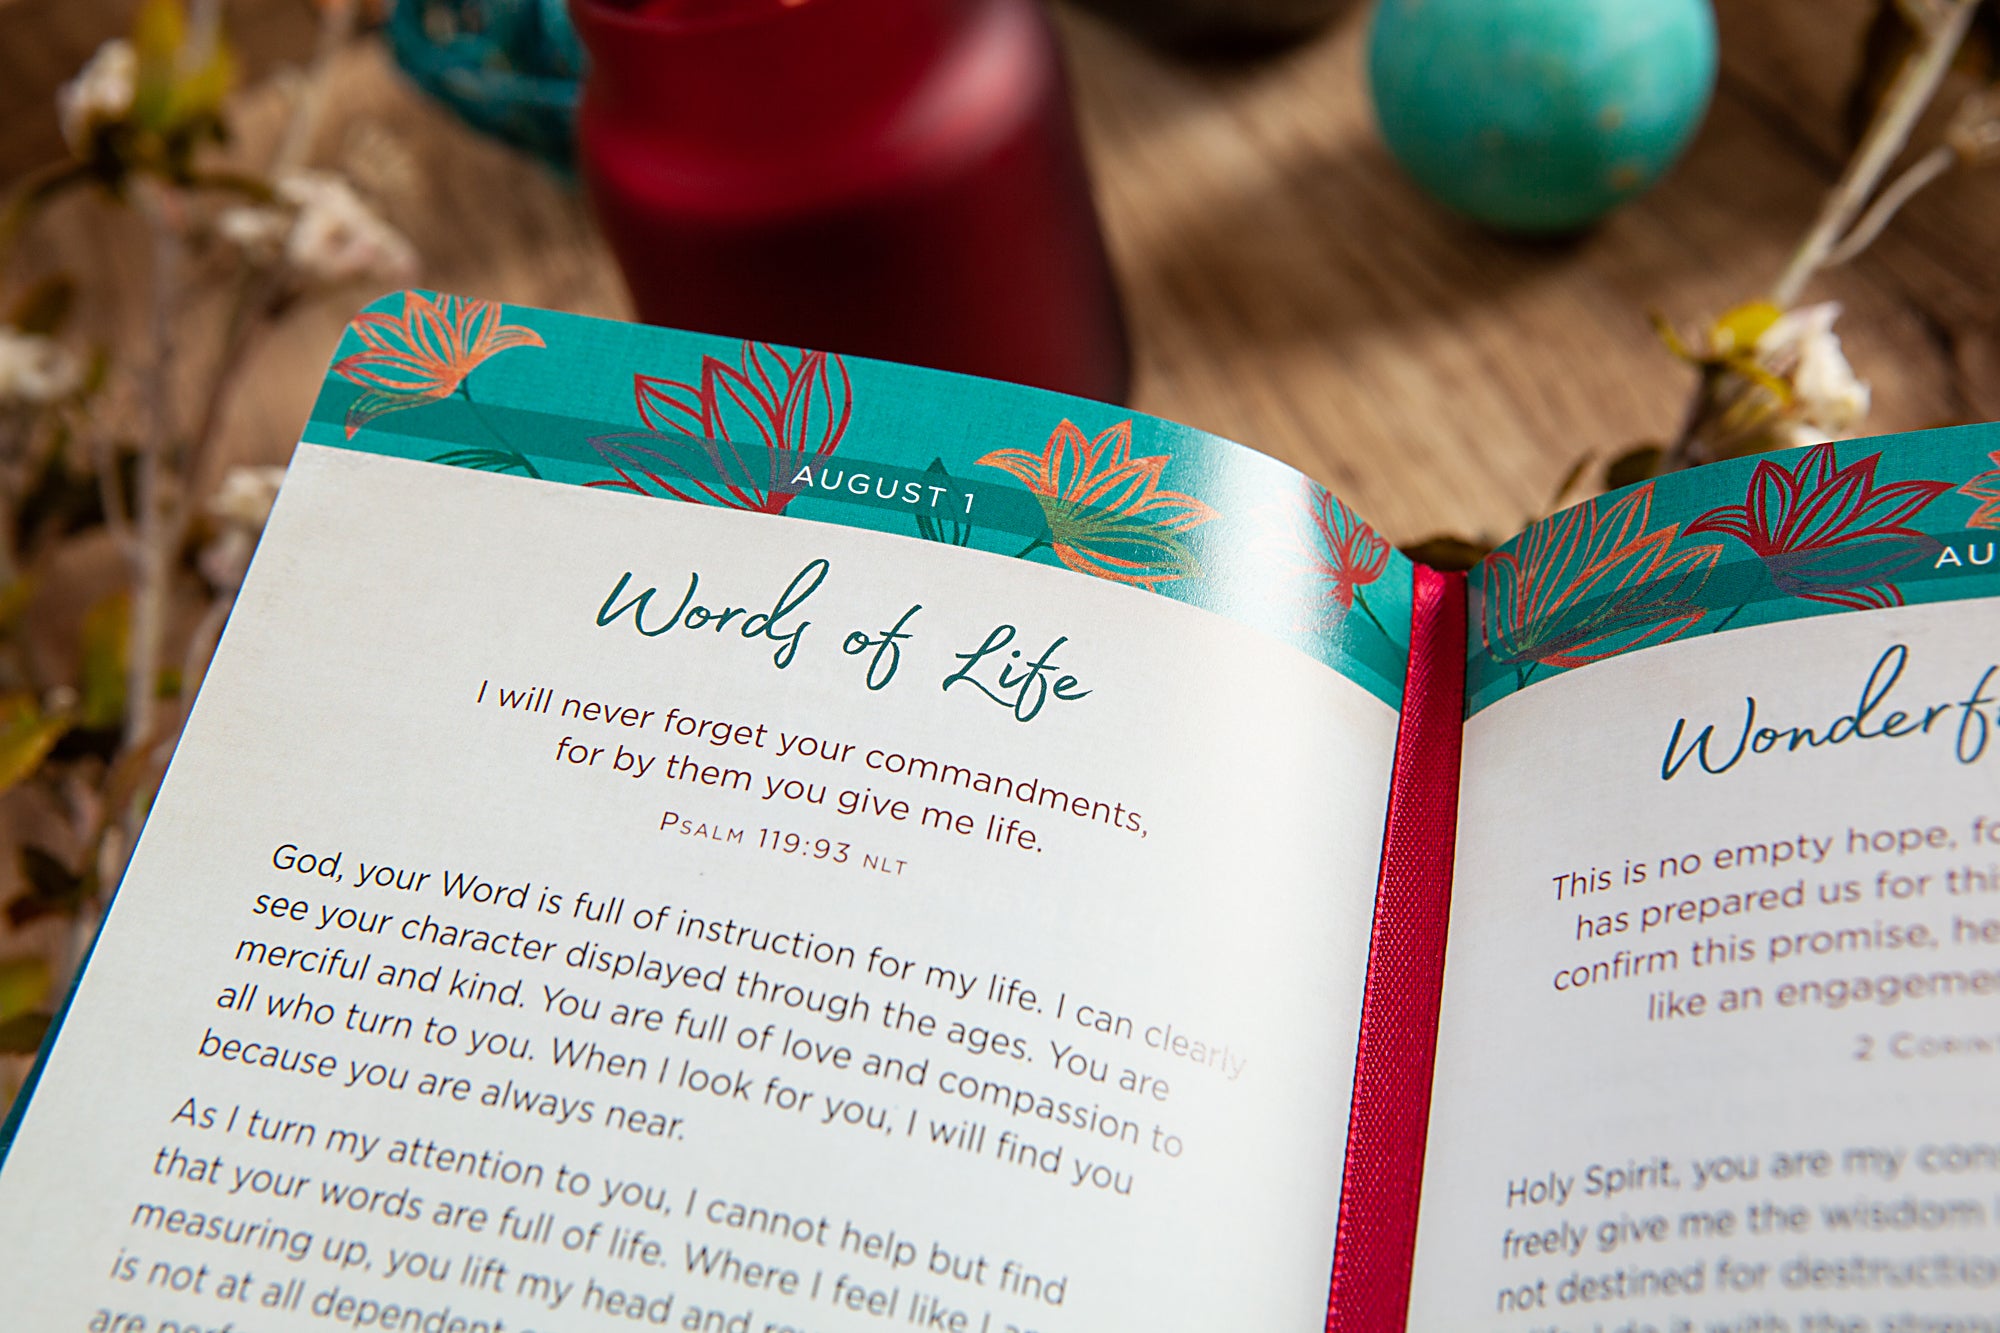 AUGUST 1
Words of Life
I will never forget your commandments,
for by them you give me life.
PSALM 119:93 NLT
God, your Word is full of instruction for my life. I can clearly
see your character displayed through the ages. You are
merciful and kind. You are full of love and compassion to
all who turn to you. When I look for you, I will find you
because you are always near.
As I turn my attention to you, I cannot help but find
that your words are full of life. Where I feel like I
measuring up, you lift my head and
is not at all dependent
are
AU
This is no empty hope,
has prepared us for
confirm this promise,
like an
2
Holy Spirit, you are my
freely give me the wisdom
not destined for